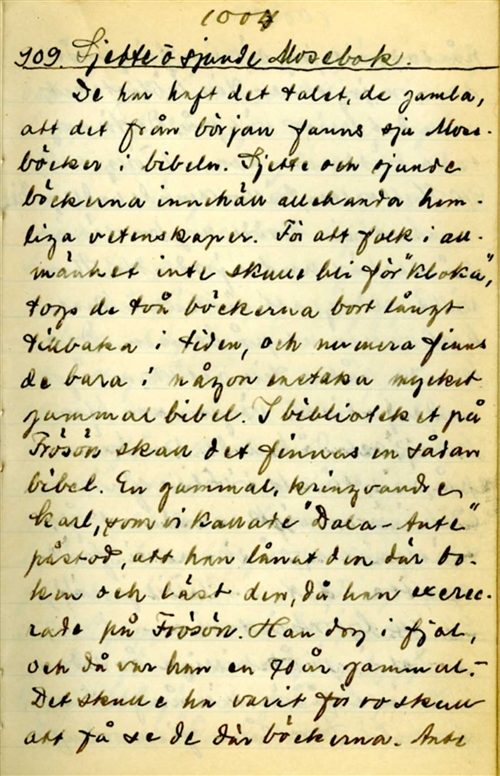 1004
909. Sjette o sjunde Mosebok.
De har haft det talet, de gamla,
att det från början fanns sju Mose-
böcker i bibeln. Sjette och sjunde
böckerna innehåll allehanda hem-
liga vetenskaper. För att folk i all-
mänhet inte skulle bli för "kloka",
togs de två böckerna bort långt
tillbaka i tiden, och numera finns
de bara i någon enstaka mycket
gammal bibel. I biblioteket på
Frösön skall det finnas en sådan
bibel. En gammal, kringvandre
karl, som vi kallade "Dala-Ante"
påstod, att han lånat den där bo-
ken och läst den, då han exerce-
rade på Frösön. Han dog i fjol,
och då var han en 70 år gammal.-
Det skulle ha varit för ro skull
att få se de där böckerna. Ante